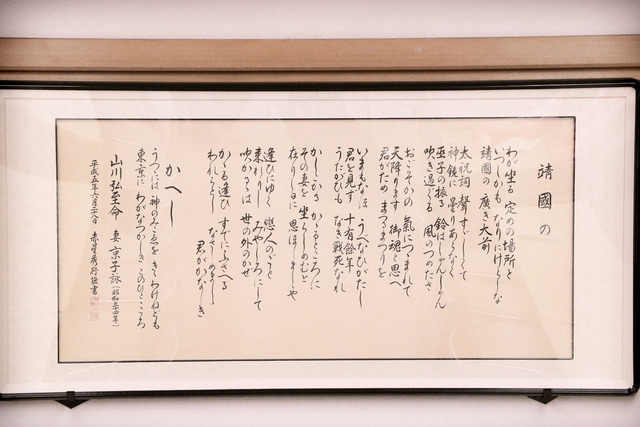 靖國の
わが坐る 定めの場所と
いつしかも なりにけらしな
靖國の 廣き大前
太祝詞 聲すゞしくて
神鏡に 曇りあらなく
巫子の振る 鈴はしやんしやん
吹き過ぐる 風のつめたさ
おごそかの 氣につつまれて
天降ります 御魂と思へ
君がため まつるまつりを
いまもなほ うべなひがたし
君を見ず 十有餘年
うたがひも なき戰死なれ
かしこかる かゝるところに
その妻を 坐らしめむと
在りし日に 思ほしきや
逢ひにゆく 戀人のごと
来れりし みやしろにして
吹くかぜは 世の外のかぜ
かゝる逢ひ すでにふさへる
われとしも なりまし
君がかなしき
かへし
うつつには 神のみこゑを きゝわけねども
東京に わがなつかしき このひとところ
山川弘至命 妻 京子詠(昭和三十四年)
平成五年六月二十六日 赤星秀行 謹書